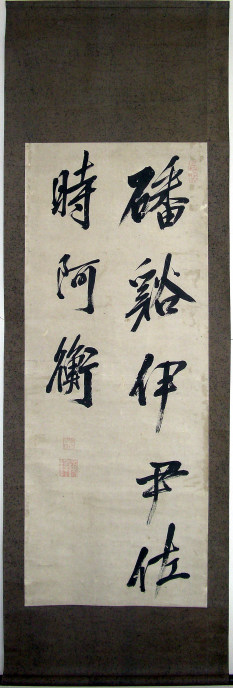 磻谿伊尹佐
時阿衡